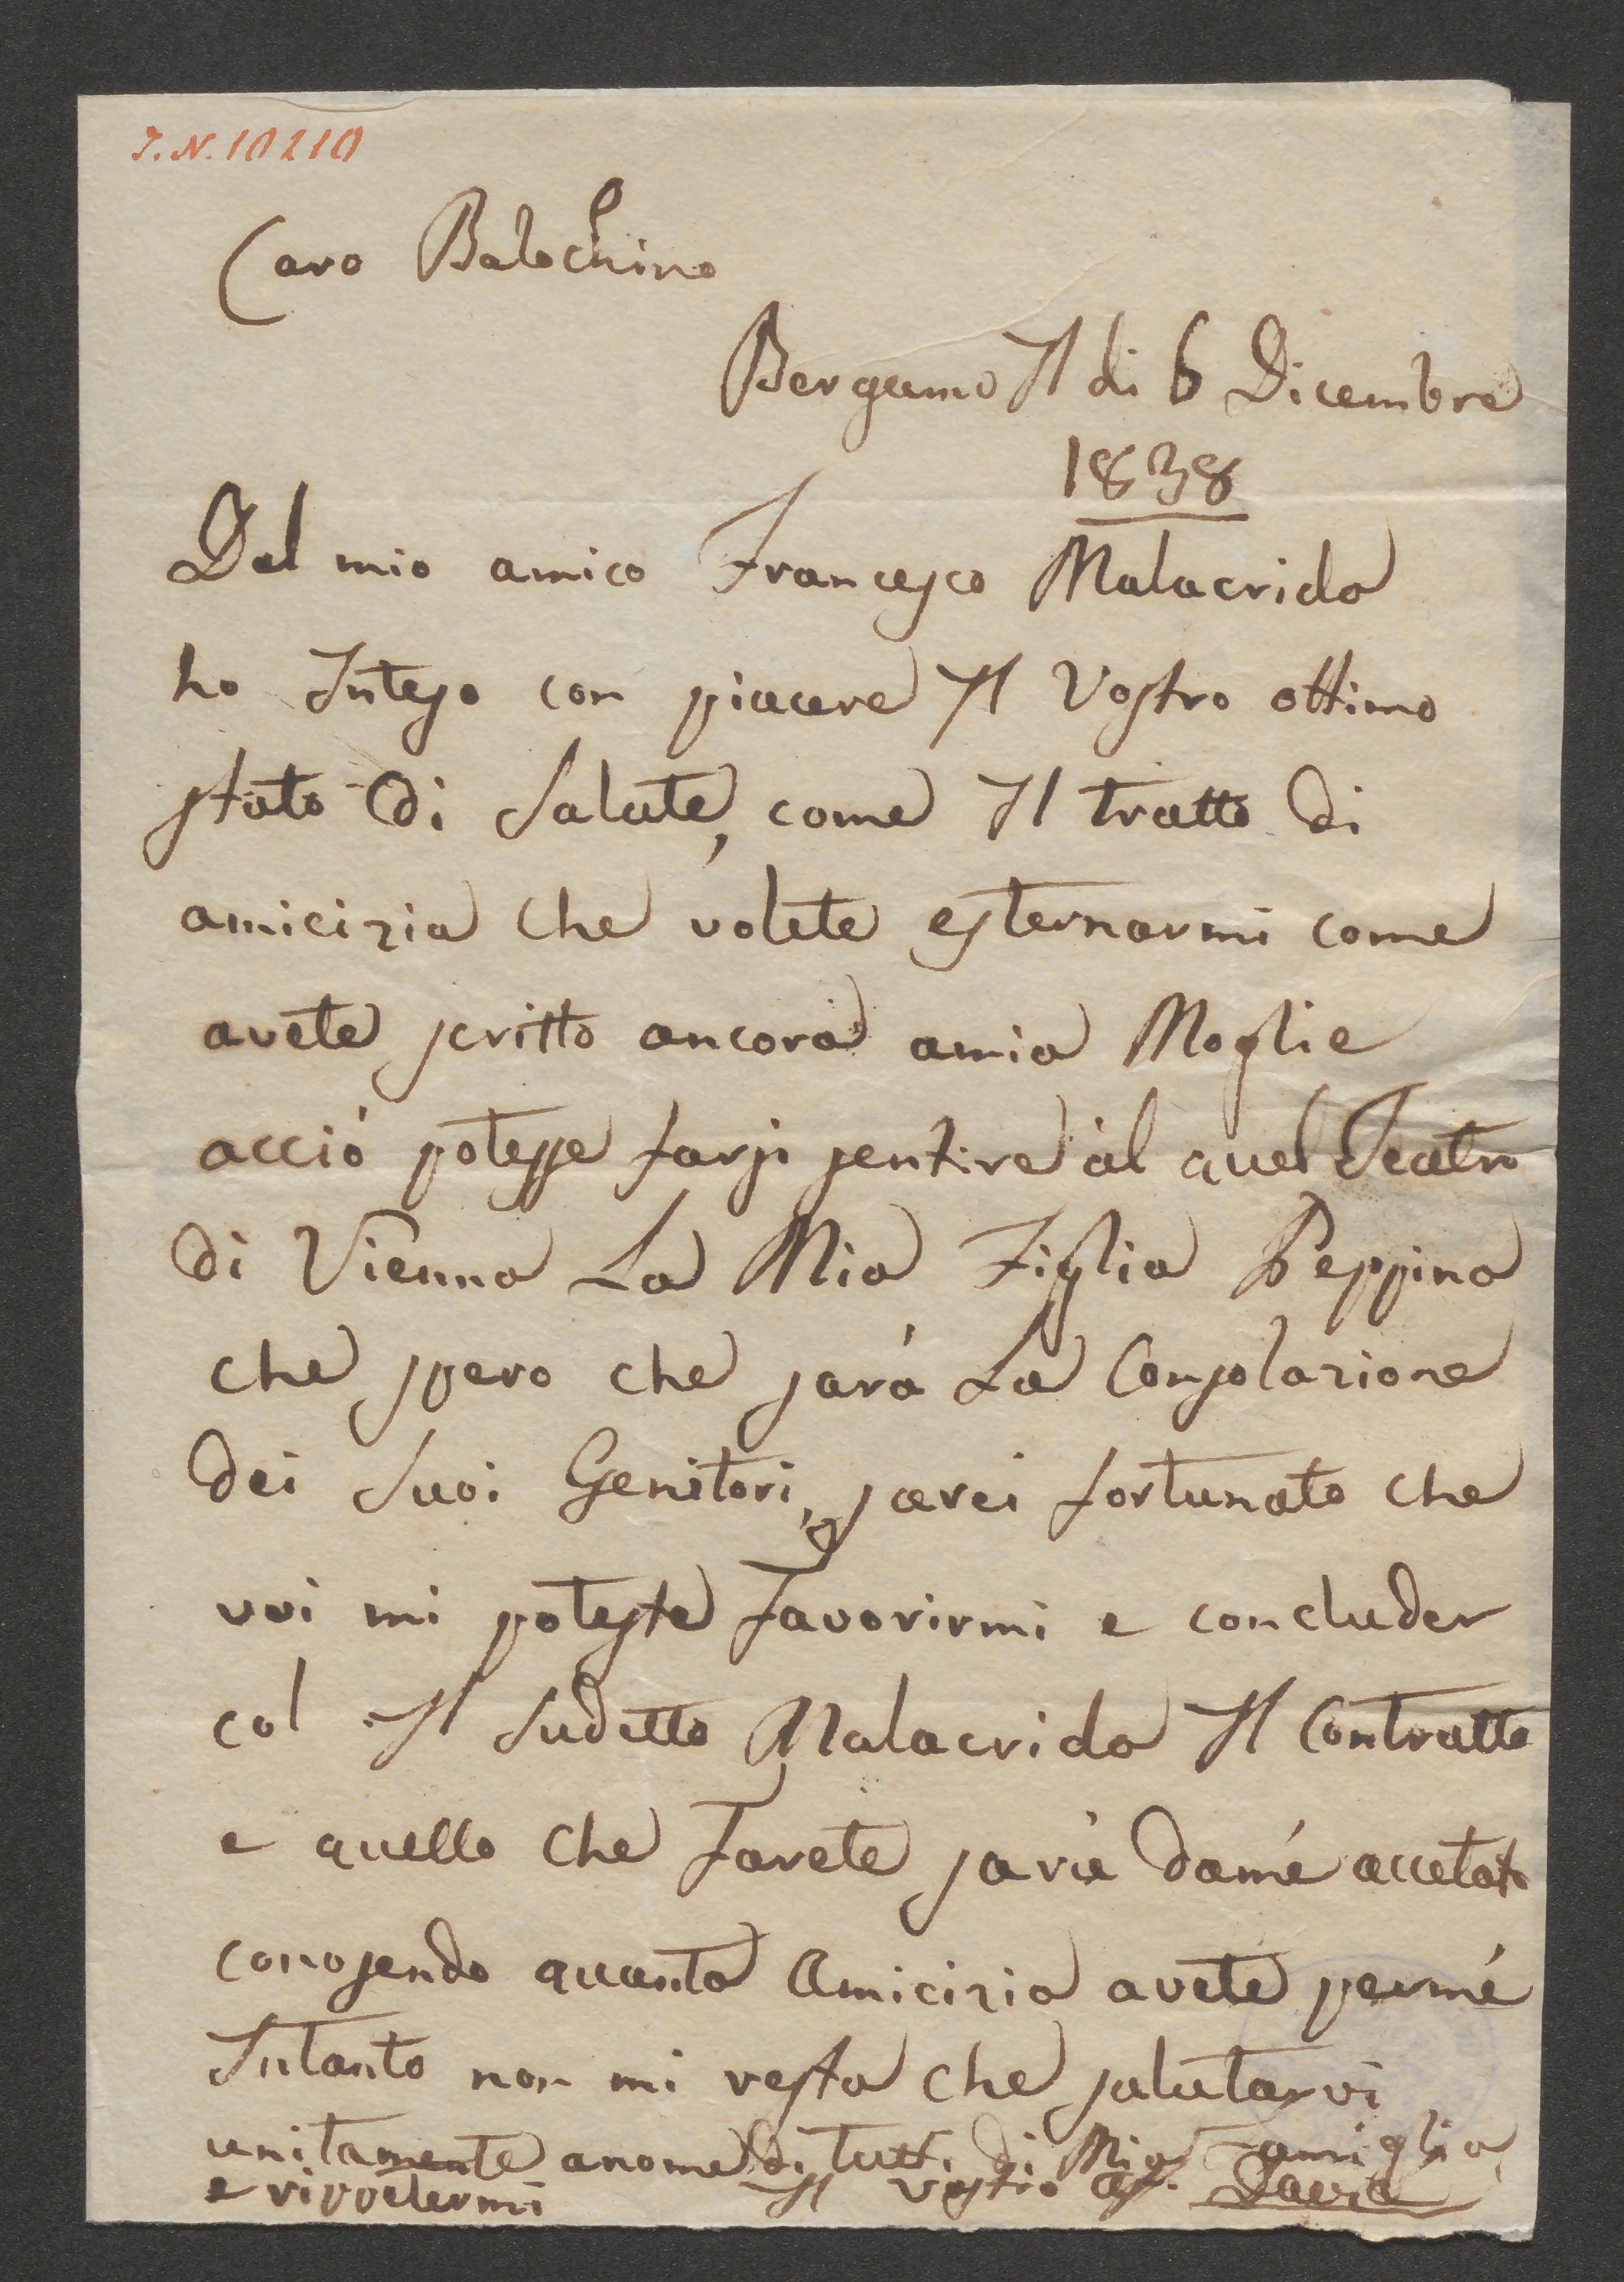 I.N. 10210
Caro Balochino
Bergamo Il di 6 Dicembre
1838
Dal mio amico Francesco Malacrida
ho Inteso con piacere Il Vostro ottimo
stato di Salute, come Il tratto di
amicizia che volete esternarmi come
avete scritto ancora amia Moglie
acciò potesse farsi sentire al quel Teatro
di Vienna La Mia Figlia Peppina
che spero che sarà La Consolazione
dei Suoi Genitori, sarei fortunato che
voi mi poteste Favorirmi e concluder
col Il Sudetto Malacrida Il Contratto
e quello che Farete sarà damé accetato
conosendo quanta Amicizia avete permé
Intanto non mi resta che salutarvi
unitamente anome di Tutti di Mia Famiglia
e rippetermi Il vostro aff.